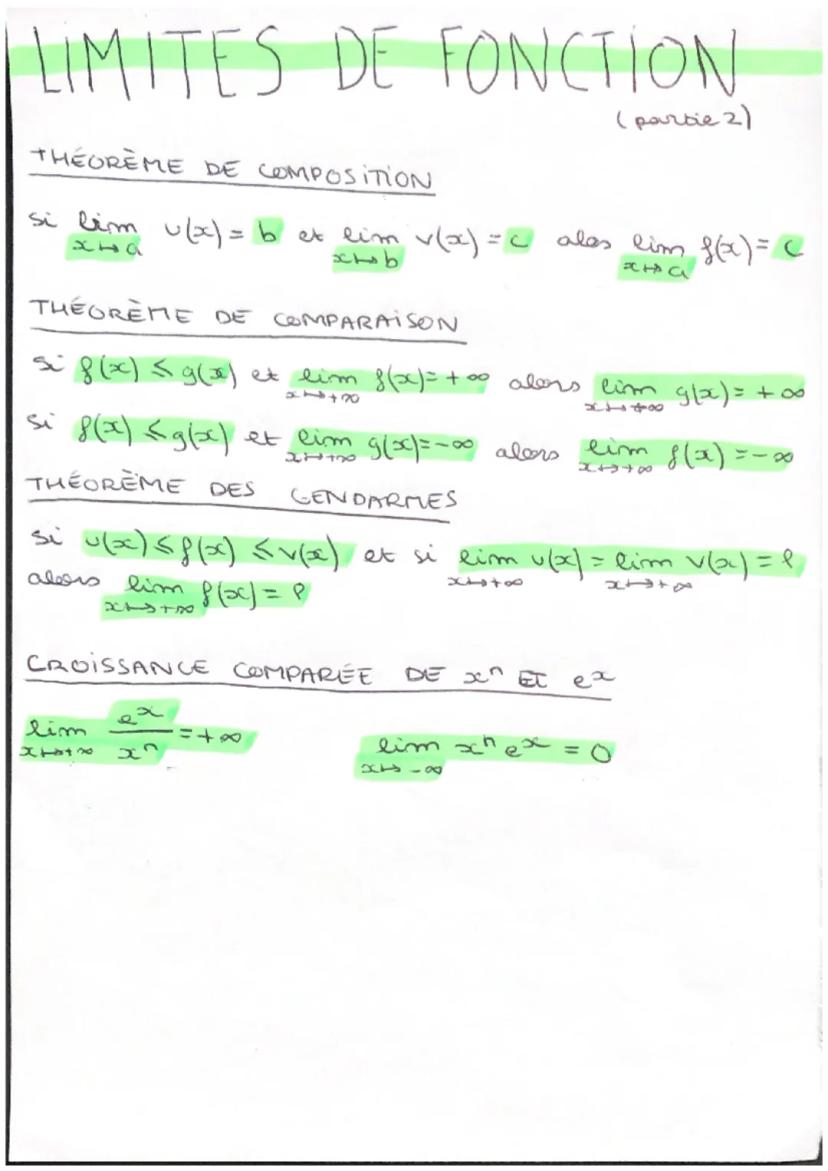 LIMITES DE FONCTION
(partie 2)
THÉORÈME DE COMPOSITION
si lim x↦a u(x) = b et lim x↦b v(x) = c alos lim x↦a f(x) = c
THÉORÈME DE COMPARAISON
si f(x) ≤ g(x) et lim x↦+∞ f(x) = +∞ alors lim x↦+∞ g(x) = +∞
si f(x) ≤ g(x) et lim x↦+∞ g(x) = -∞ alors lim x↦+∞ f(x) = -∞
THÉORÈME DES GENDARMES
si u(x) ≤ f(x) ≤ v(x) et si lim x↦+∞ u(x) = lim x↦+∞ v(x) = l
alors lim x↦+∞ f(x) = l
CROISSANCE COMPARÉE DE xⁿ ET eˣ
lim x↦+∞ eˣ/xⁿ = +∞ lim x↦-∞ xⁿ eˣ = 0